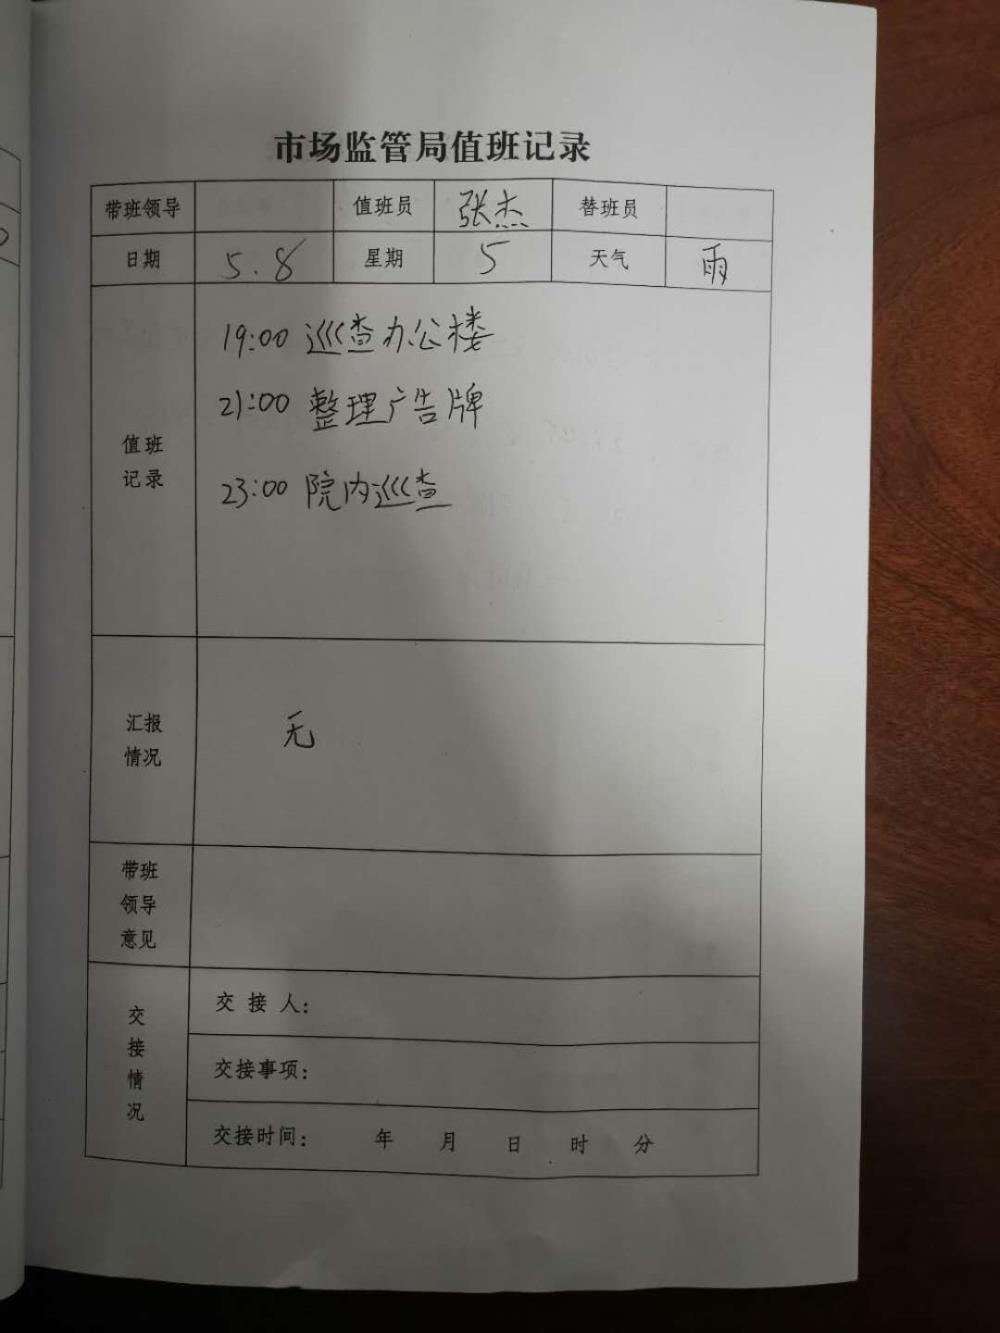 市场监管局值班记录
带班领导 值班员 张杰 替班员
日期 5.8 星期 5 天气 雨
值班
记录
19:00 巡查办公楼
21:00 整理广告牌
23:00 院内巡查
汇报
情况
无
带班
领导
意见
交
接
情
况
交接人:
交接事项:
交接时间: 年 月 日 时 分